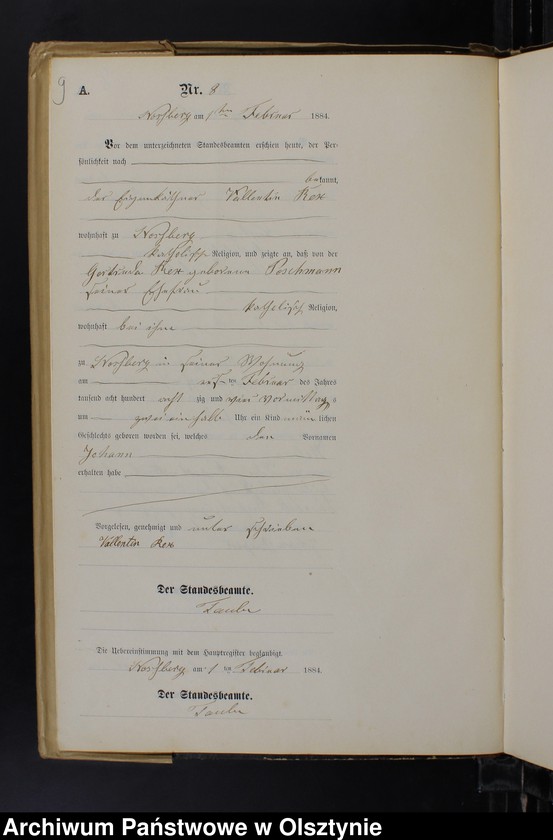 9
A. Nr. 8
am 1ten Februar 1884.
Vor dem unterzeichneten Standesbeamten erschien heute, der Per-
sönlichkeit nach
bekannt,
der Eigenkäthner Vallentin Rex
wohnhaft zu
katholischer Religion, und zeigte an, daß von der
Gertruda Rex geborenen Poschmann
seiner Ehefrau
katholischer Religion,
wohnhaft bei ihm
zu in seiner Wohnung
am ten Februar des Jahres
tausend acht hundert achtzig und vier Vormittags
um zwei einhalb Uhr ein Kind männlichen
Geschlechts geboren worden sei, welches den Vornamen
Johann
erhalten habe
Vorgelesen, genehmigt und unterschrieben
Vallentin Rex
Der Standesbeamte.
Die Uebereinstimmung mit dem Hauptregister beglaubigt.
am 1ten Februar 1884.
Der Standesbeamte.
Archiwum Państwowe w Olsztynie